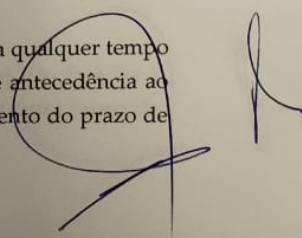 a qualquer tempo
antecedência ao
ento do prazo de